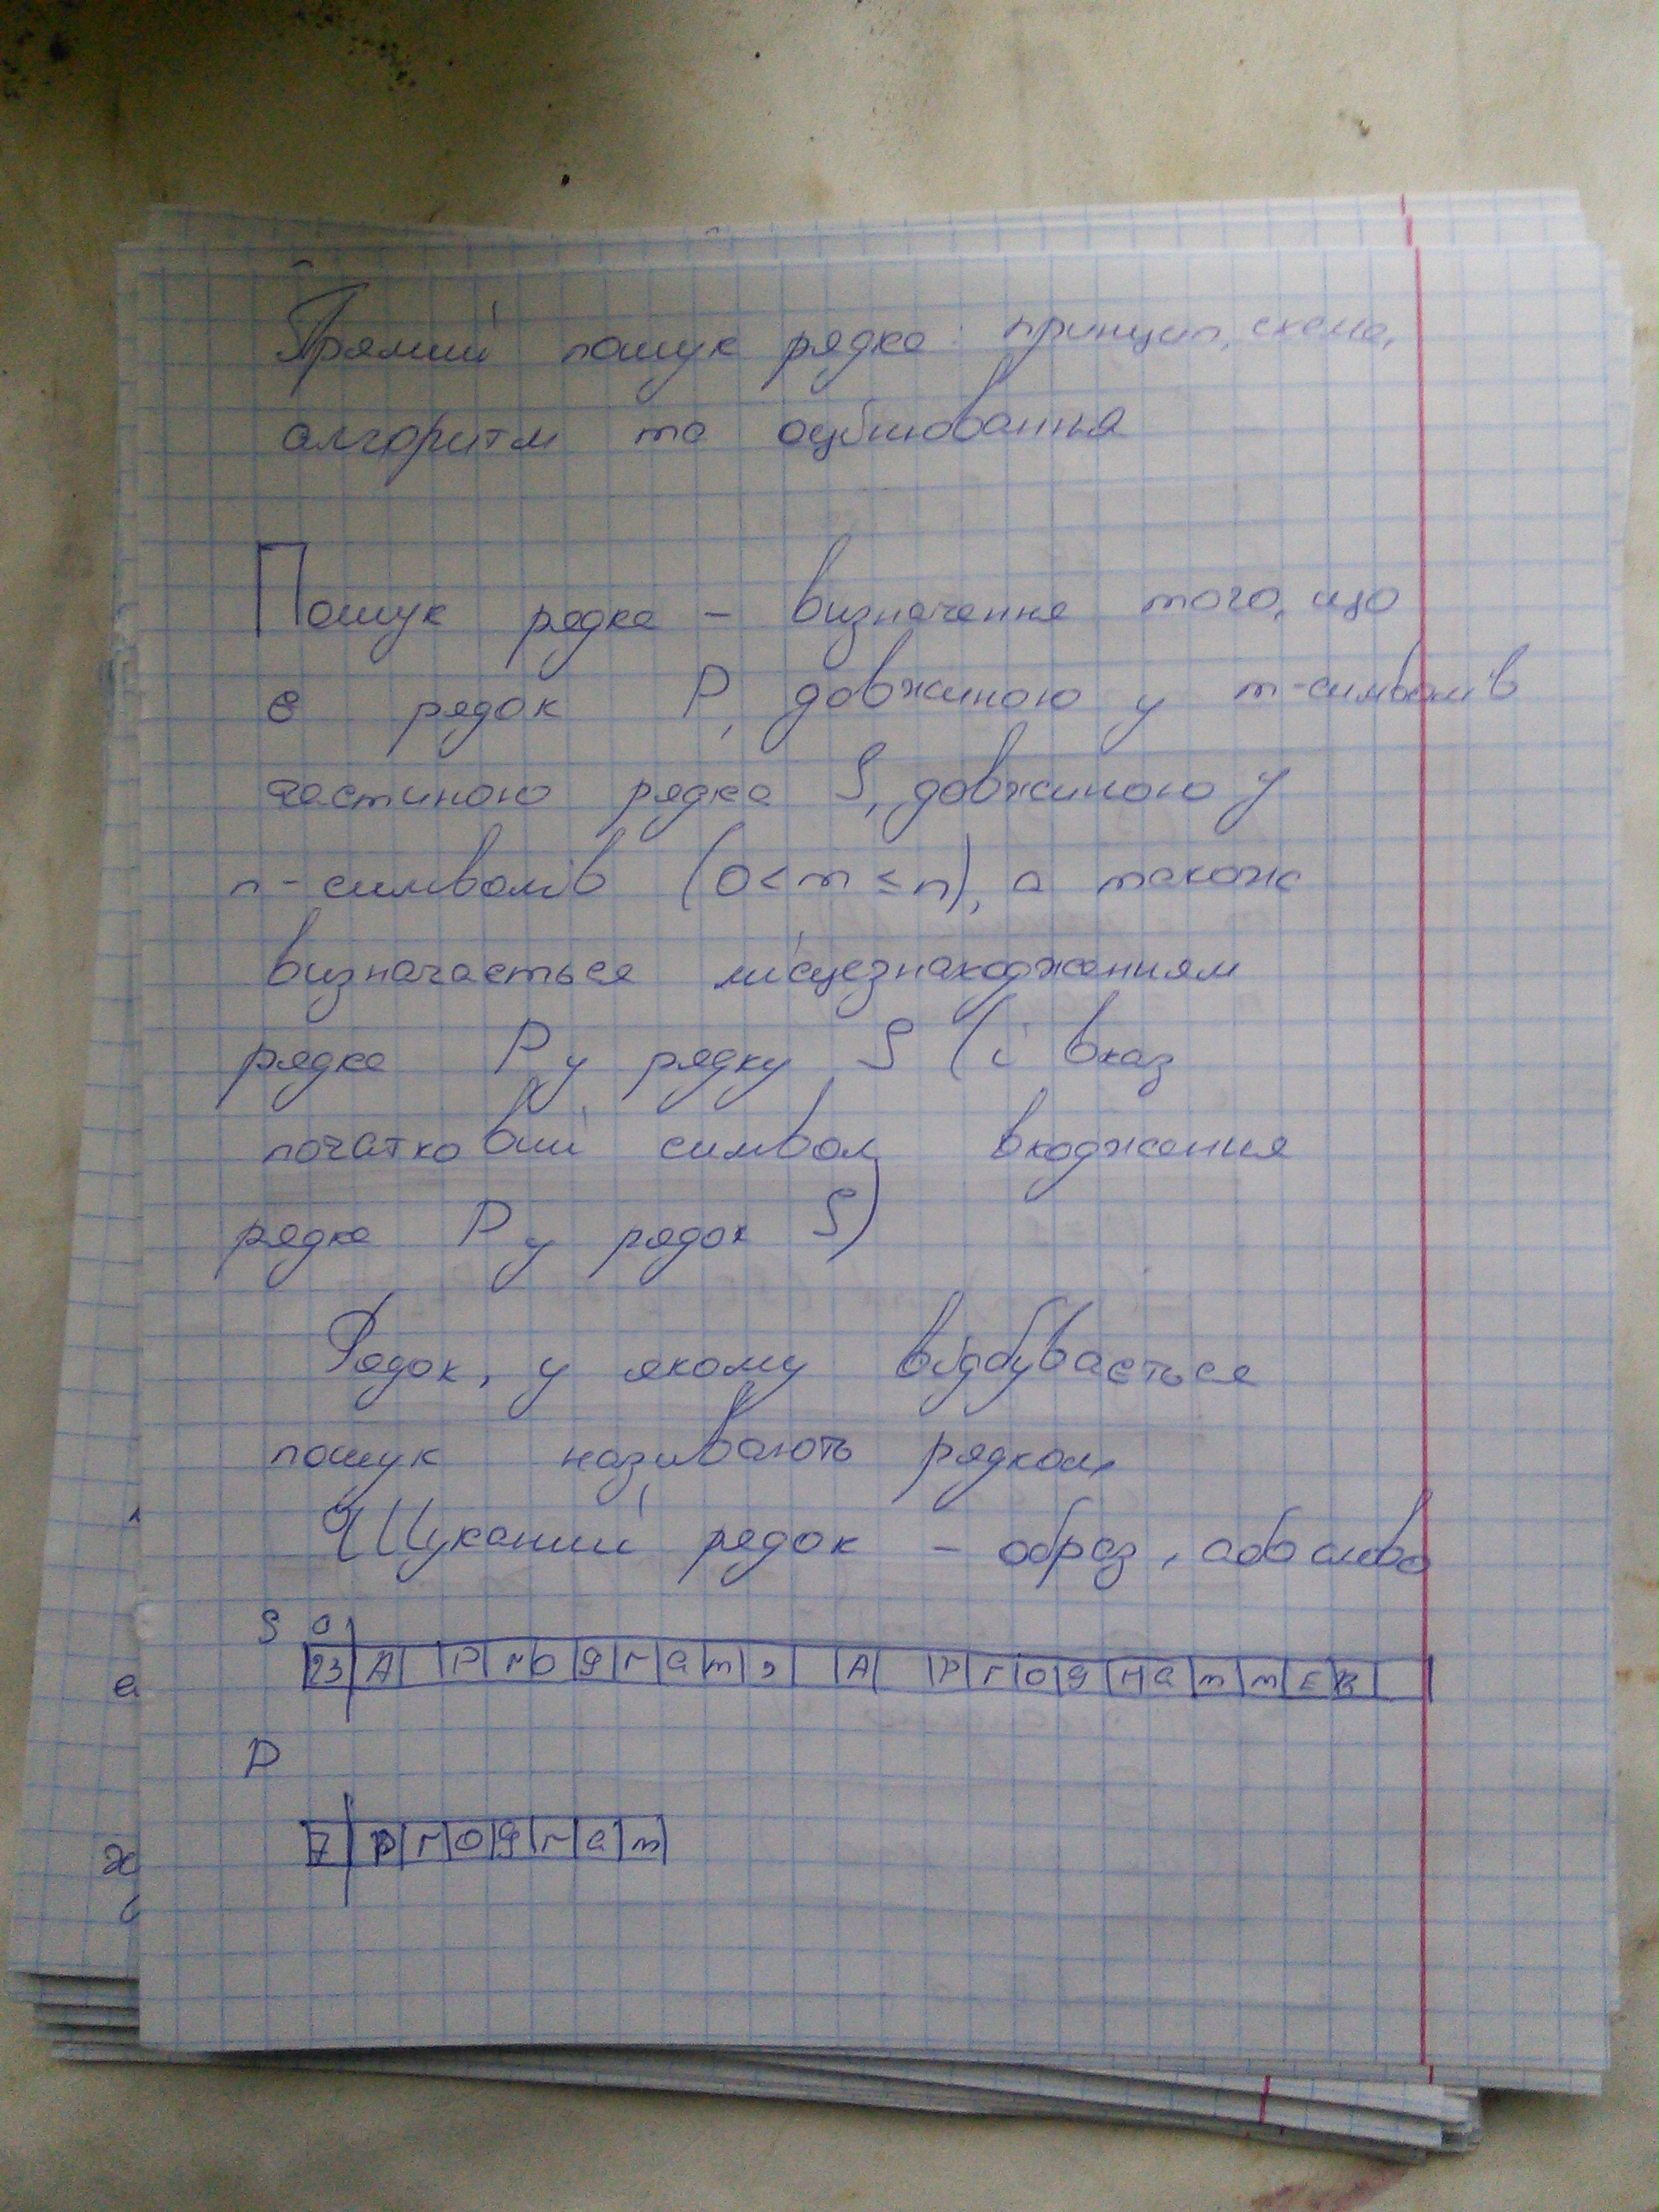 Прямий пошук рядка: принцип, схема,
алгоритм та оцінювання
Пошук рядка – визначення того, що
є рядок P, довжиною у m-символів
частиною рядка S, довжиною у
n-символів (0<m≤n), а також
визначається місцезнаходженням
рядка P у рядку S (і вказ
початковий символ входження
рядка P у рядок S)
Рядок, у якому відбувається
пошук називають рядком,
Шуканий рядок – образ, або слово
S 0
23 A P r o g r a m , A P r o g r a m m E R
P
7 p r o g r a m